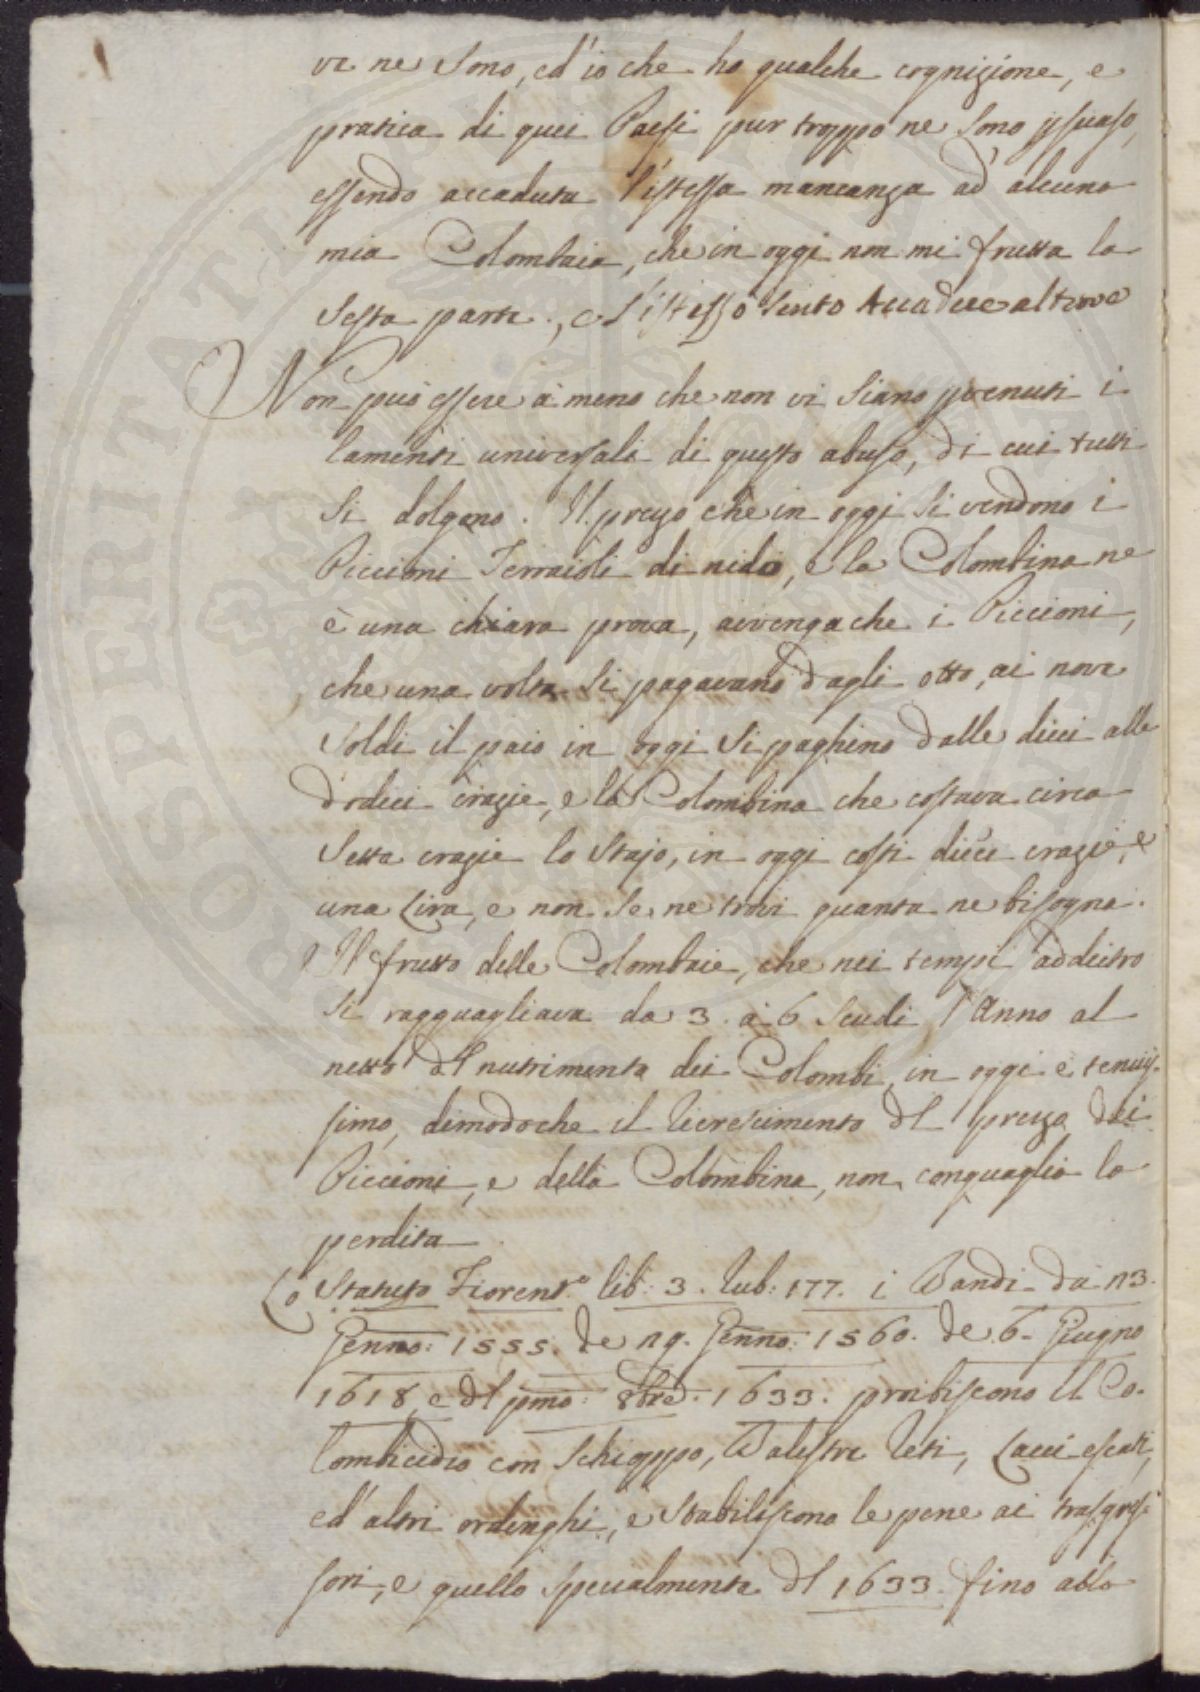 vi ne sono, ed' io che ho qualche cognizione, e
pratica di quei Paesi pur troppo ne sono psuaso,
essendo accaduta l'istessa mancanza ad' alcuna
mia Colombaia, che in oggi non mi frutta la
sesta parte, e l'istesso sento Accadere altrove
Non può essere à meno che non vi siano pvenuti i
lamenti universali di questo abuso, di cui tutti
si dolgono. Il prezzo che in oggi si vendono i
Piccioni Terraioli di nido, e la Colombina ne
è una chiara prova, avvengache i Piccioni,
che una volta si pagavano dagli otto, ai nove
soldi il paio in oggi si paghino dalle dieci alle
dodeci crazie, e la Colombina che costava circa
sette crazie lo Stajo, in oggi costi dieci crazie, e
una Lira, e non se ne trovi quanta ne bisogna.
Il frutto delle Colombaie, che nei tempi addietro
si ragguagliava da 3. a 6 scudi l'Anno al
netto dl nutrimento dei Colombi, in oggi è tenuis-
simo, dimodoche il ricrescimento dl prezzo dei
Piccioni, e della Colombina, non conguaglia la
perdita.
Lo Statuto Fiorent.o lib: 3. rub: 177. i Bandi da 13.
Genno: 1555. de 19. Genno: 1560. de 6. Giugno
1618, e dl pmo: 8bre. 1633. proibiscono il Co-
lombicidio con Schioppo, Balestre Reti, Lacci escati,
ed' altri ordinghi, e stabiliscono le pene ai trasgres
sori, e quello specialmente dl 1633. fino alla
PROSPERITATI PUBLICAE